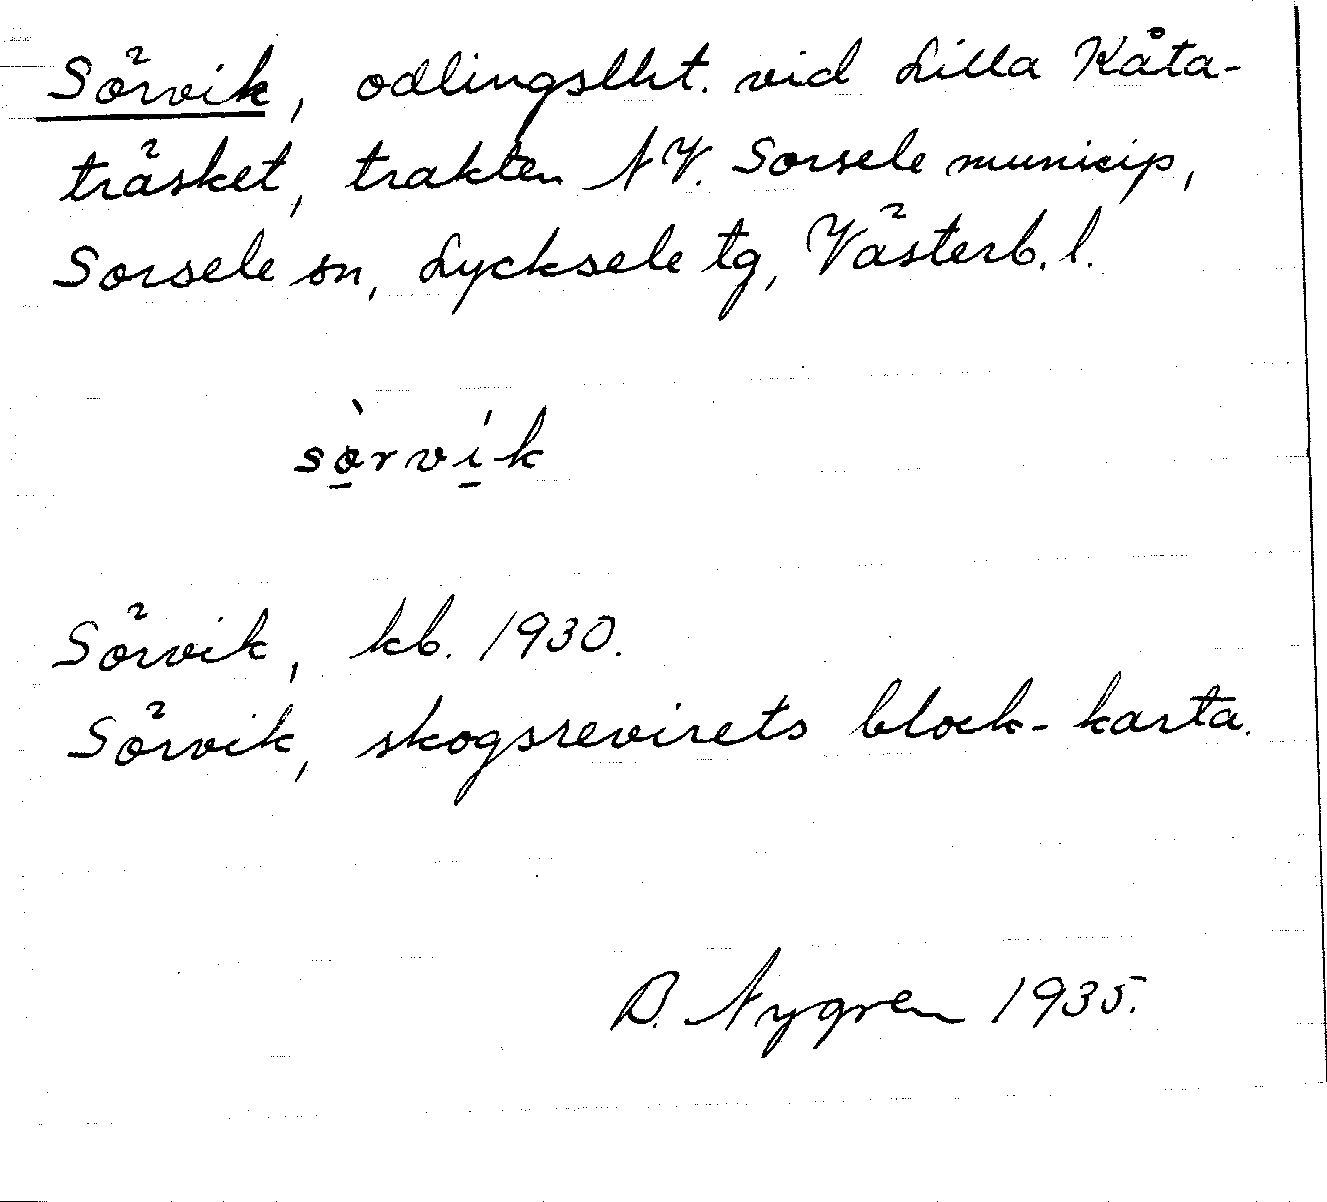 Sörvik, odlingslht. vid Lilla Kåta-
träsket, trakten NV. Sorsele municip,
Sorsele sn, Lycksele tg, Västerb. l.
sø̱̀rví̱k
Sörvik, kb. 1930.
Sörvik, skogsrevirets block-karta.
B. Nygren 1935.